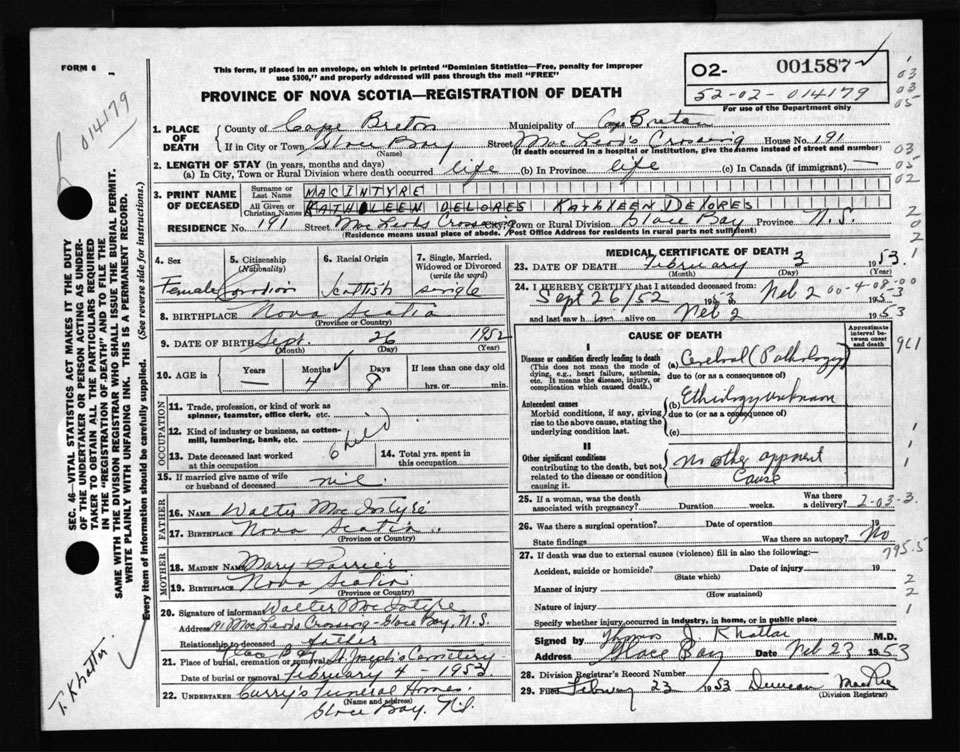 FORM 6
014179
This form, if placed in an envelope, on which is printed "Dominion Statistics—Free, penalty for improper
use $300," and properly addressed will pass through the mail "FREE"
O2- 001587
52-02-014179
For use of the Department only
PROVINCE OF NOVA SCOTIA—REGISTRATION OF DEATH
1. PLACE OF DEATH
County of Cape Breton Municipality of Cape Breton
If in City or Town Glace Bay Street MacLeod's Crossing House No. 191
(Name) (If death occurred in a hospital or institution, give the name instead of street and number)
2. LENGTH OF STAY (in years, months and days)
(a) In City, Town or Rural Division where death occurred life (b) In Province life (c) In Canada (if immigrant)—
3. PRINT NAME OF DECEASED
Surname or Last Name MACINTYRE
All Given or Christian Names KATHLEEN DELORES KATHLEEN DELORES
RESIDENCE No. 191 Street MacLeods Crossing City, Town or Rural Division Glace Bay Province N.S.
(Residence means usual place of abode. Post Office Address for residents in rural parts not sufficient)
4. Sex Female
5. Citizenship (Nationality) Canadian
6. Racial Origin Scottish
7. Single, Married, Widowed or Divorced (write the word) single
8. BIRTHPLACE Nova Scotia
(Province or Country)
9. DATE OF BIRTH Sept. 26 1952
(Month) (Day) (Year)
10. AGE in Years — Months 4 Days 8 If less than one day old
hrs. or min.
OCCUPATION
11. Trade, profession, or kind of work as
spinner, teamster, office clerk, etc.
12. Kind of industry or business, as cotton-
mill, lumbering, bank, etc.
child
13. Date deceased last worked
at this occupation
14. Total yrs. spent in
this occupation
15. If married give name of wife
or husband of deceased nil.
FATHER
16. NAME Walter MacIntyre
17. BIRTHPLACE Nova Scotia
(Province or Country)
MOTHER
18. MAIDEN NAME Mary
19. BIRTHPLACE Nova Scotia
(Province or Country)
20. Signature of informant Walter MacIntyre
Address 191 MacLeods Crossing - Glace Bay, N.S.
Relationship to deceased father
21. Place of burial, cremation or removal Glace Bay St. Joseph's Cemetery
Date of burial or removal February 4 1953
22. UNDERTAKER Curry's Funeral Homes.
(Name and address)
Glace Bay. N.S.
MEDICAL CERTIFICATE OF DEATH
23. DATE OF DEATH February 3 1953.
(Month) (Day) (Year)
24. I HEREBY CERTIFY that I attended deceased from:
Sept 26/52 1953 to Feb 2 00-4-08-00 1953
and last saw h im alive on Feb 2 1953
CAUSE OF DEATH
Approximate interval between onset and death
I
Disease or condition directly leading to death
(This does not mean the mode of
dying, e.g., heart failure, asthenia,
etc. It means the disease, injury, or
complication which caused death.)
(a) Cerebral (Pathology)
due to (or as a consequence of)
Antecedent causes
Morbid conditions, if any, giving
rise to the above cause, stating the
underlying condition last.
(b) Ethiology unknown
due to (or as a consequence of)
(c)
II
Other significant conditions
contributing to the death, but not
related to the disease or condition
causing it.
no other apparent
cause
25. If a woman, was the death
associated with pregnancy? Duration weeks. Was there
a delivery? 2-03-3.
26. Was there a surgical operation? Date of operation 19
State findings Was there an autopsy? No
795.5
27. If death was due to external causes (violence) fill in also the following:—
Accident, suicide or homicide? Date of injury 19
(State which)
Manner of injury
(How sustained)
Nature of injury
Specify whether injury occurred in industry, in home, or in public place
Signed by Thomas J. Khattar M.D.
Address Glace Bay Date Feb 23 1953
28. Division Registrar's Record Number
29. Filed February 23 1953 Duncan MacRae
(Division Registrar)
SEC. 46—VITAL STATISTICS ACT MAKES IT THE DUTY
OF THE UNDERTAKER OR PERSON ACTING AS UNDER-
TAKER TO OBTAIN ALL THE PARTICULARS REQUIRED
IN THE "REGISTRATION OF DEATH" AND TO FILE THE
SAME WITH THE DIVISION REGISTRAR WHO SHALL ISSUE THE BURIAL PERMIT.
WRITE PLAINLY WITH UNFADING INK. THIS IS A PERMANENT RECORD.
Every item of information should be carefully supplied. (See reverse side for instructions.)
T. Khattar
1
03
03
05
03
05
02
2
0
2
9C1
1
1
2
2
1